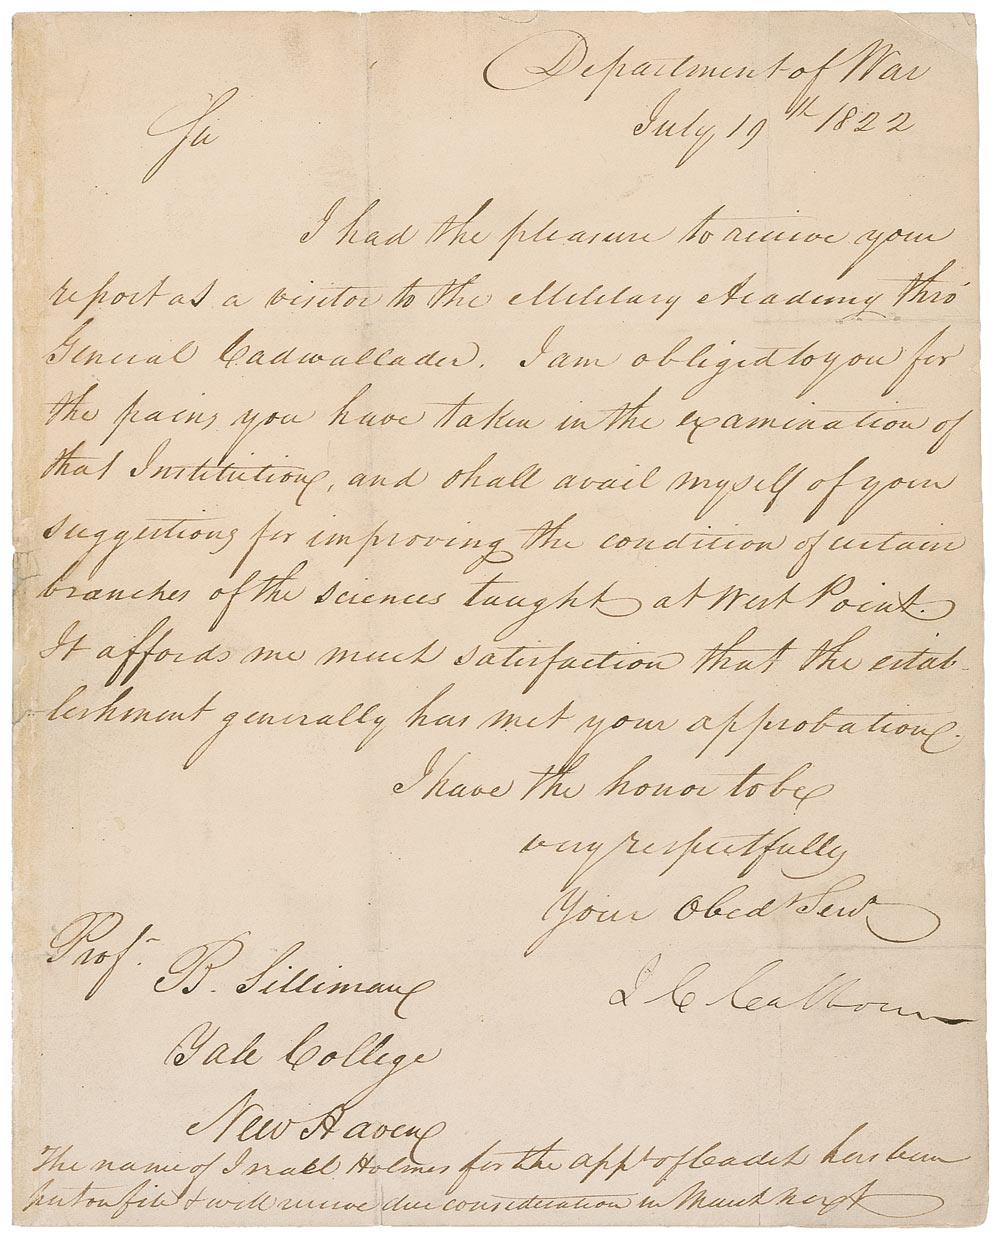 Department of War
July 19th 1822
Sir
I had the pleasure to receive your
report as a visitor to the Military Academy thro'
General Cadwallader. I am obliged to you for
the pains you have taken in the examination of
that Institution, and shall avail myself of your
suggestions for improving the condition of certain
branches of the sciences taught at West Point.
It affords me much satisfaction that the estab-
lishment generally has met your approbation.
I have the honor to be
very respectfully
Your Obedt Servt
J C Calhoun
Prof.
B. Silliman
Yale College
New Haven
The name of Israel Holmes for the appt of Cadet has been
put on file & will receive due consideration in March next